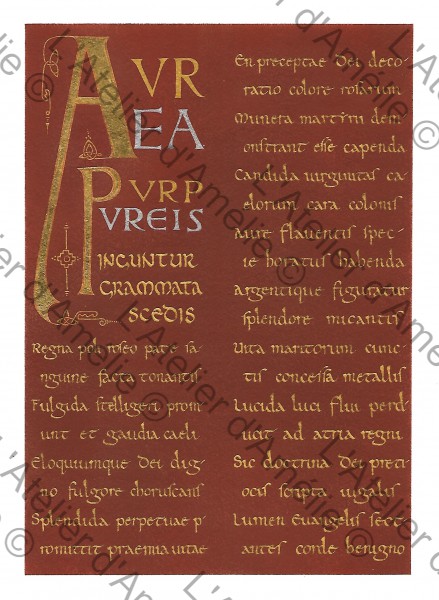 AVR
EA
PVRP
VREIS
INGUNTUR
GRAMMATA
SCEDIS
Regna poli roseo pate sa-
nguine facta tonantis
Fulgida stelligeri prom
unt et gaudia caeli
Eloquiumque Dei dig
no fulgore choruscans
Splendida perpetuae p
romittit praemia vitae
En preceptae Dei deco
ratio colore rosarum
Munera martyrii dem
onstrant esse capenda
Candida virginitas ca
elorum cara colonis
Aure flaventis spec
ie horatus habenda
argentique figuratur
splendore micantis
Vita maritorum cunc
tis concessa metallis
Lucida luci flui perd
ucit ad atria regni
Sic doctrina Dei preti
ocis scripta iugalis
Lumen Evangelis sect
antes corde benigno
L'Atelier d'Amélie ©